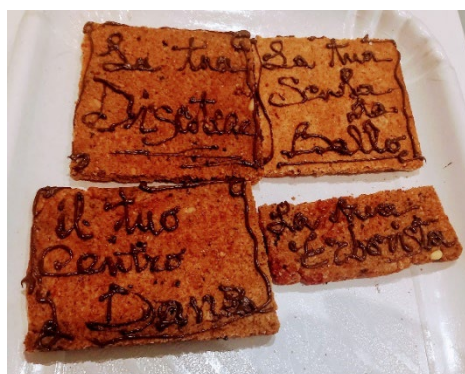 La tua
Discoteca
La tua
Scuola
da
Ballo
il tuo
Centro
Danza
La tua
Erborista